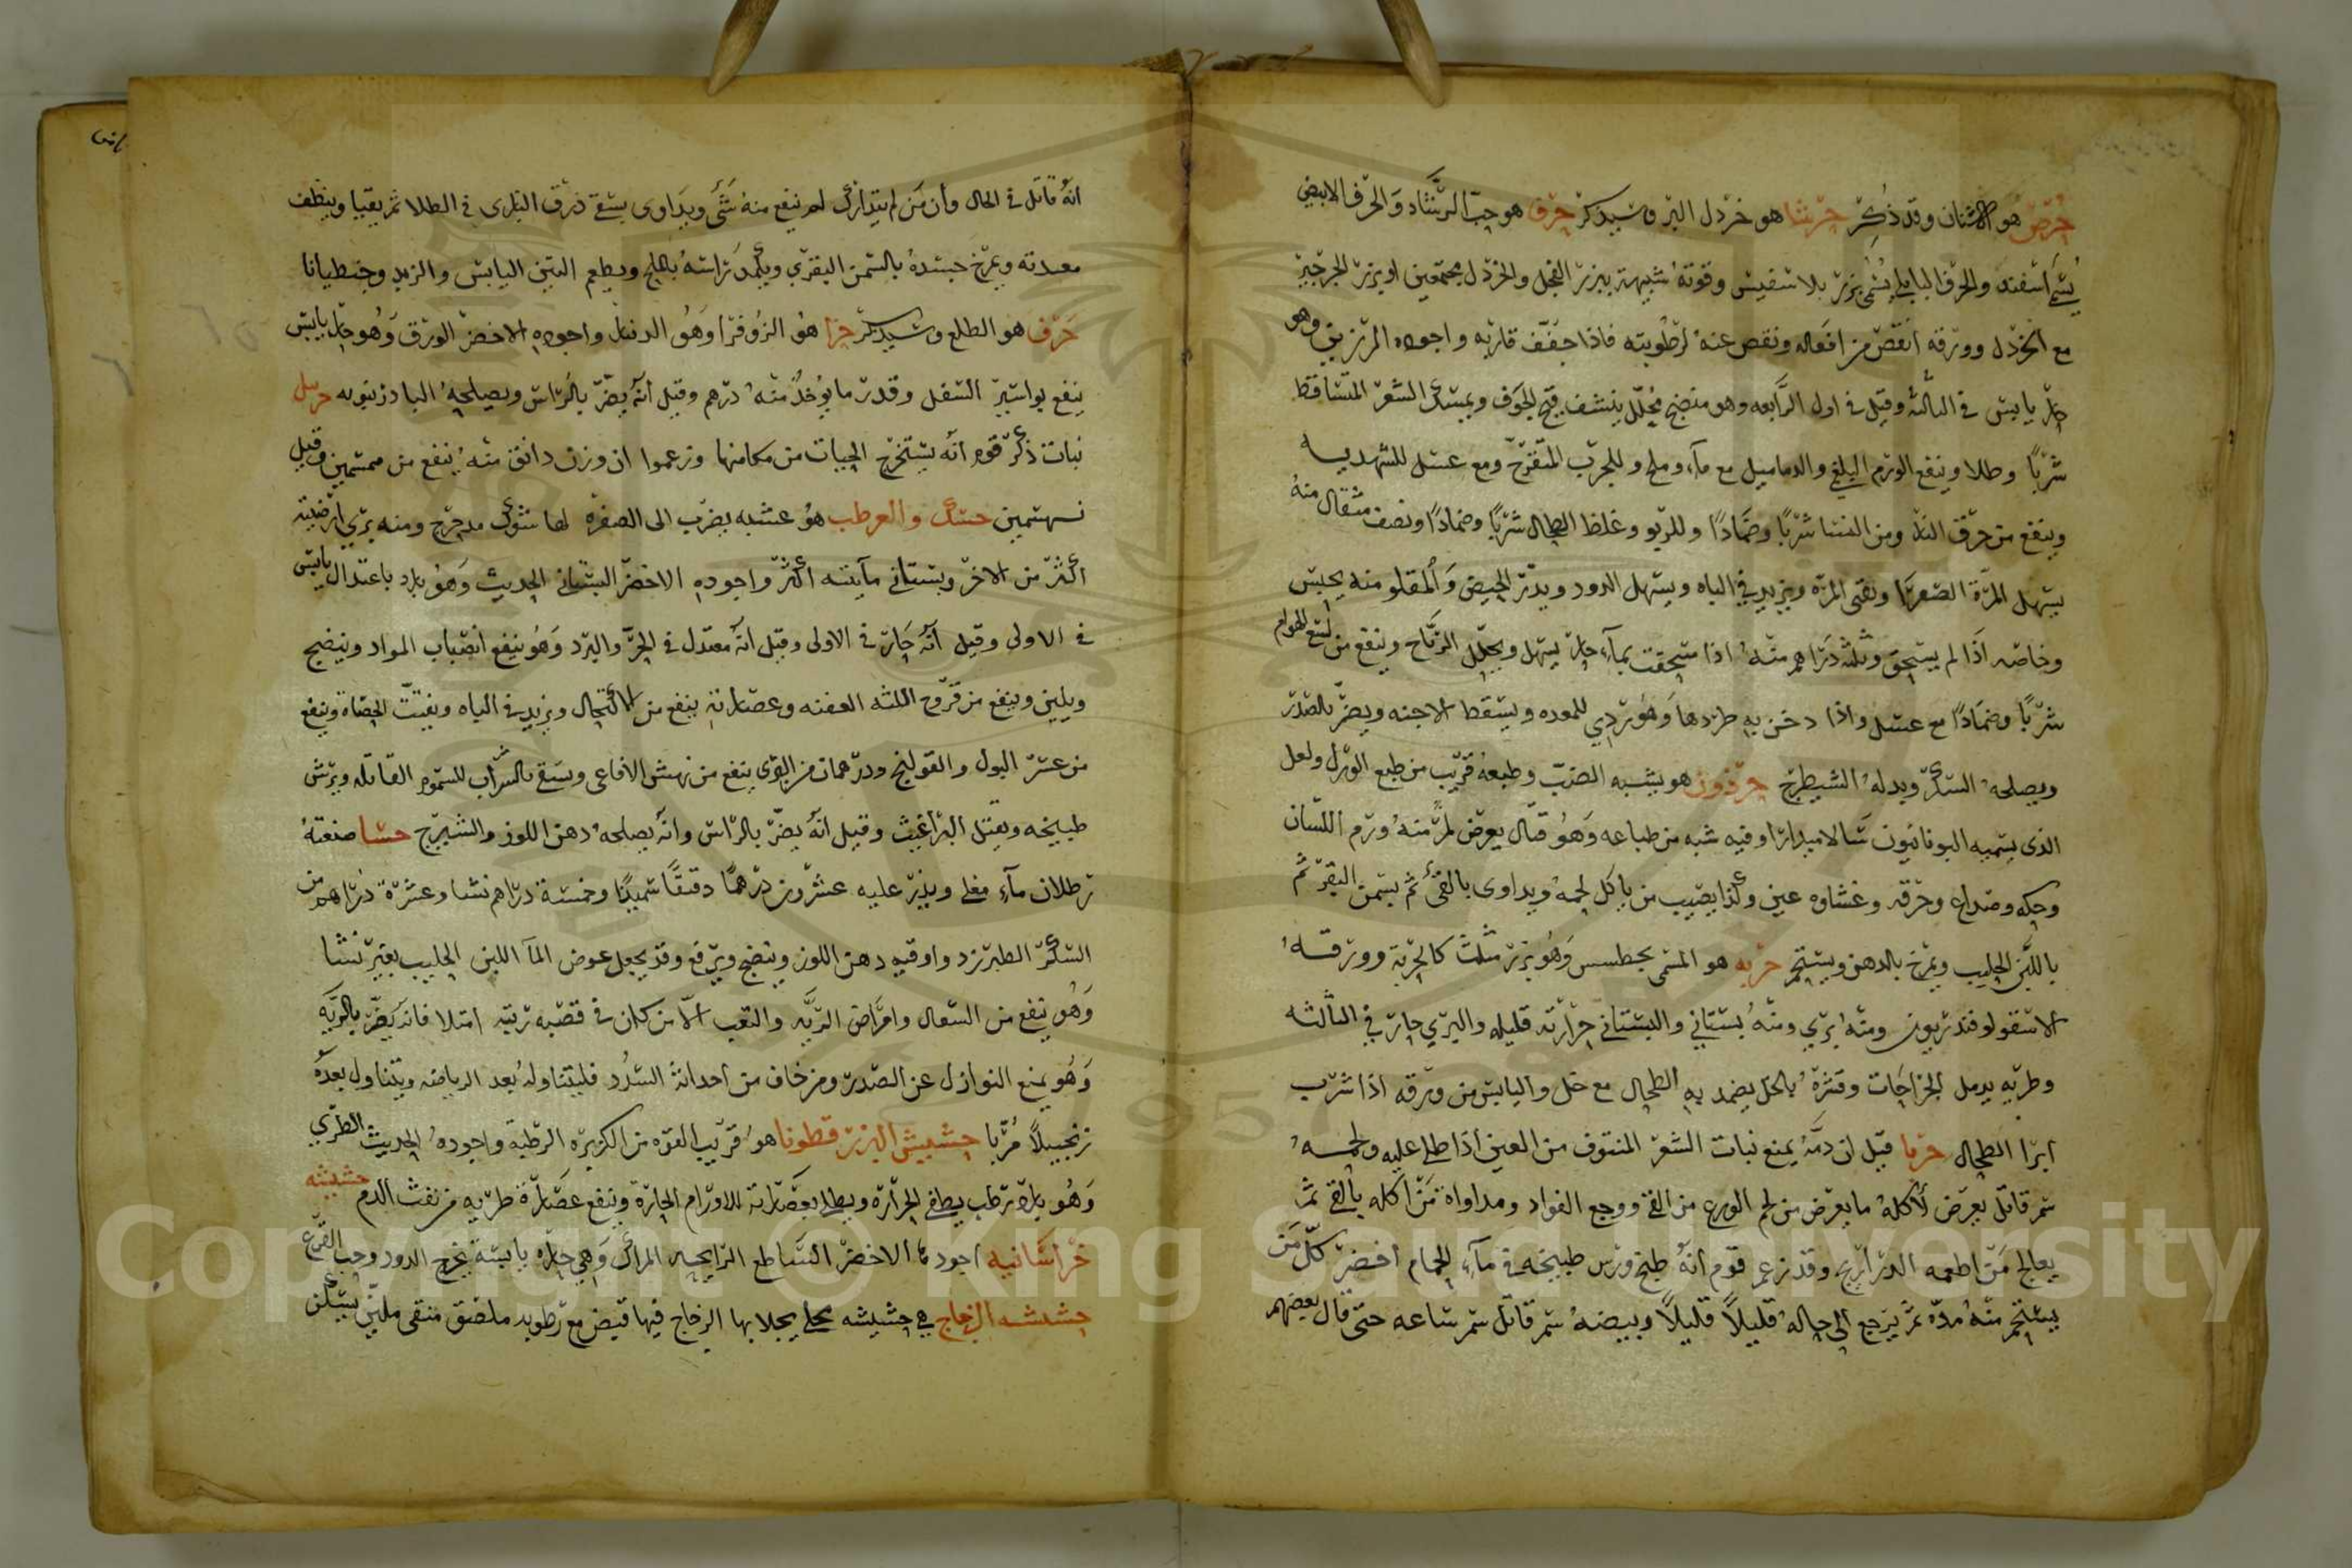 حُرُض هو الاشنان وقد ذُكِر حرشا هو خردل البر وسيذكر حرف هو حبّ الرشاد وَالحرف الابيض
يُسَمّى اسفند والحرف البابلي يُسمّى بزر بلاسفيس وقوته شبيهة ببزر الفجل والخردل مجتمعين او بزر الجرجير
مع الخردل وورقه انقص من افعاله ونقص عنه لرطوبته فاذا جفف قاربه واجوده المرزيق وهو
حار يابس في الثالثه وقيل في اول الرابعه وهو منضج محلل ينشف قيح الجوف ويمسك الشعر المتساقط
شربًا وطلا وينفع الورم البلغمي والدماميل مع مآء وملح وللجرب المتقرح ومع عسل للشهديه
وينفع من حرق النار ومن النسا شربًا وضمادًا وللربو وغلظ الطحال شربًا وضمادًا ونصف مثقال منهُ
يسهل المرّة الصفرا ونقى المرّه ويزيد في الباه ويسهل الدود ويدر الحيض وَالمقلو منه يحبس
وخاصّه اذا لم يسحق وثلثة دراهم منهُ اذا سحقت بمآء حار يسهل ويحلل الرياح وينفع من لسع الهوام
شربًا وضمادًا مع عسل واذا دخن به طردها وَهُو ردي للمعده ويسقط الاجنه ويضرّ بالصّدر
ويصلحهُ السكر وبدلهُ الشيطرج حرذون هو يشبه الضبّ وطبعهُ قريب من طبع الورل ولعل
الذى يسميه اليونانيون سَالاميدارا وفيه شبه من طباعه وَهُو قتّال يعرض لمن منهُ ورم اللّسان
وحكه وصداع وحرقه وغشاوه عين وكذا يصيب من ياكل لحمه ويداوى بالقئ ثم بسمن البقر ثم
باللّبن الحليب ويمرخ بالدهن ويستحم حربه هو المسمى بجطسس وَهُو بزر مثلث كالحربة وورقه
الاسقولوفندريون ومنه برّي ومنهُ بستاني والبستاني حرارته قليله والبرّي حار في الثالثه
وطريه يدمل الجراحَات وقشرهُ بالخل يضمد به الطحال مع خل واليابس من ورقه اذا شرب
ابرا الطحال حربا قيل ان دمّهُ يمنع نبات الشعر المنتوف من العين اذا طلي عليه ولحمهُ
سمّ قاتل يعرَض لآكلهُ ما يعرض من لحم الوزغ من القئ ووجع الفواد ومداواة مَن اكله بالقئ ثمّ
يعالج مَن اطعمه الدراريح وقد زعم قوم انهُ ان طبخ ورُس طبيخه في مآء الحمام اخضرّ كلّ مَن
يستحم منهُ مدّه ثمّ يرجع الى حالهُ قليلاً قليلاً وبيضهُ سمّ قاتل سمّ ساعه حتى قال بعضهم
انهُ قاتل في الحال وأن مَن لم يتدارك لم ينفع منه شَئ ويدَاوى بسقي ذرق البازى في الطلا ثم يقيا وينظف
معدته ويمرخ جسَدهُ بالسّمن البقري ويكمد رَاسهُ بالملح ويطعم التين اليابس والزبد وجنطيانا
حَرف هو الطلع وسَيذكر حزا هُو الزُوفرا وَهُو الدنبل واجوده الاخضر الورق وَهُو حار يابس
ينفع بواسير السفل وقدر ما يؤخذ منهُ درهم وقيل انّه يضرّ بالرّاس ويصلحهُ البادزنبويه حرمل
نبات ذكر قوم انّه يستخرج الحيات من مكامنها وزعموا ان وزن دانق منهُ ينفع من ممسمين وقيل
نسهتمين حسك والعرطب هُو عشبه يضرب الى الصفرة لها شوك مدحرج ومنه برّي ارضيّته
أكثر من الاخر وبستاني مآيته أكثر واجوده الاخضر البستاني الحديث وَهُو بارد باعتدال يابس
في الاولى وقيل انّه حَارّ في الاولى وقيل انّه معتدل في الحَرّ والبرد وَهُو ينفع انصباب المواد وينضج
ويلين وينفع من قروح اللثه العفنه وعصارته ينفع من الاكتحال ويزيد في الباه ويفتّت الحصاة وينفع
من عسر البول والقولنج ودرهمان من البرّى ينفع من نهش الافاعى وسَقي بالشراب للسموم القاتله ويرش
طبيخه ويقتل البراغيث وقيل انّه يضرّ بالرّاس وانّه يصلحهُ دهن اللوز والشيرج حسَا صنعتهُ
رطلان مآءٍ مغلي ويذرّ عليه عشرون درهمًا دقيقًا سَميدًا وخمسة دراهم نشا وعشرة دَراهم من
السّكر الطبرزد واوقيه دهن اللوز وينضج ويرفع وقد يجعل عوض المآ اللبن الحليب بغير نشا
وَهُو ينفع من السّعال وامراض الريّه والتعب الاّ من كان في قصبه ريته امتلا فانه يضرّ بالريّه
وَهُو يمنع النوازل عن الصّدر ومن خاف من احداثهُ السّدد فليتناولهُ بعد الرياضه ويتناول بعدهُ
زنجبيلاً مُربّا حشيش البزر قطونا هوُ قريب القوّه من الكزبره الرطبة واجودهُ الحديث الطري
وَهُو بارد رطب يطفي الحرارة ويطلا بعصارته للاورَام الحارّة وينفع عصارة طريه من نفث الدم حشيشه
خراسَانيه اجودها الاخضر السّاطع الرّايحه المرائق وَهي حارّه يابسَة تخرج الدود وحب القرع
حشيشه الزجاج هي حشيشه يجلا بها الزجاج فيها قبض مع رطوبه ملصق منقى مليّن يسكن
Copyright © King Saud University
1957